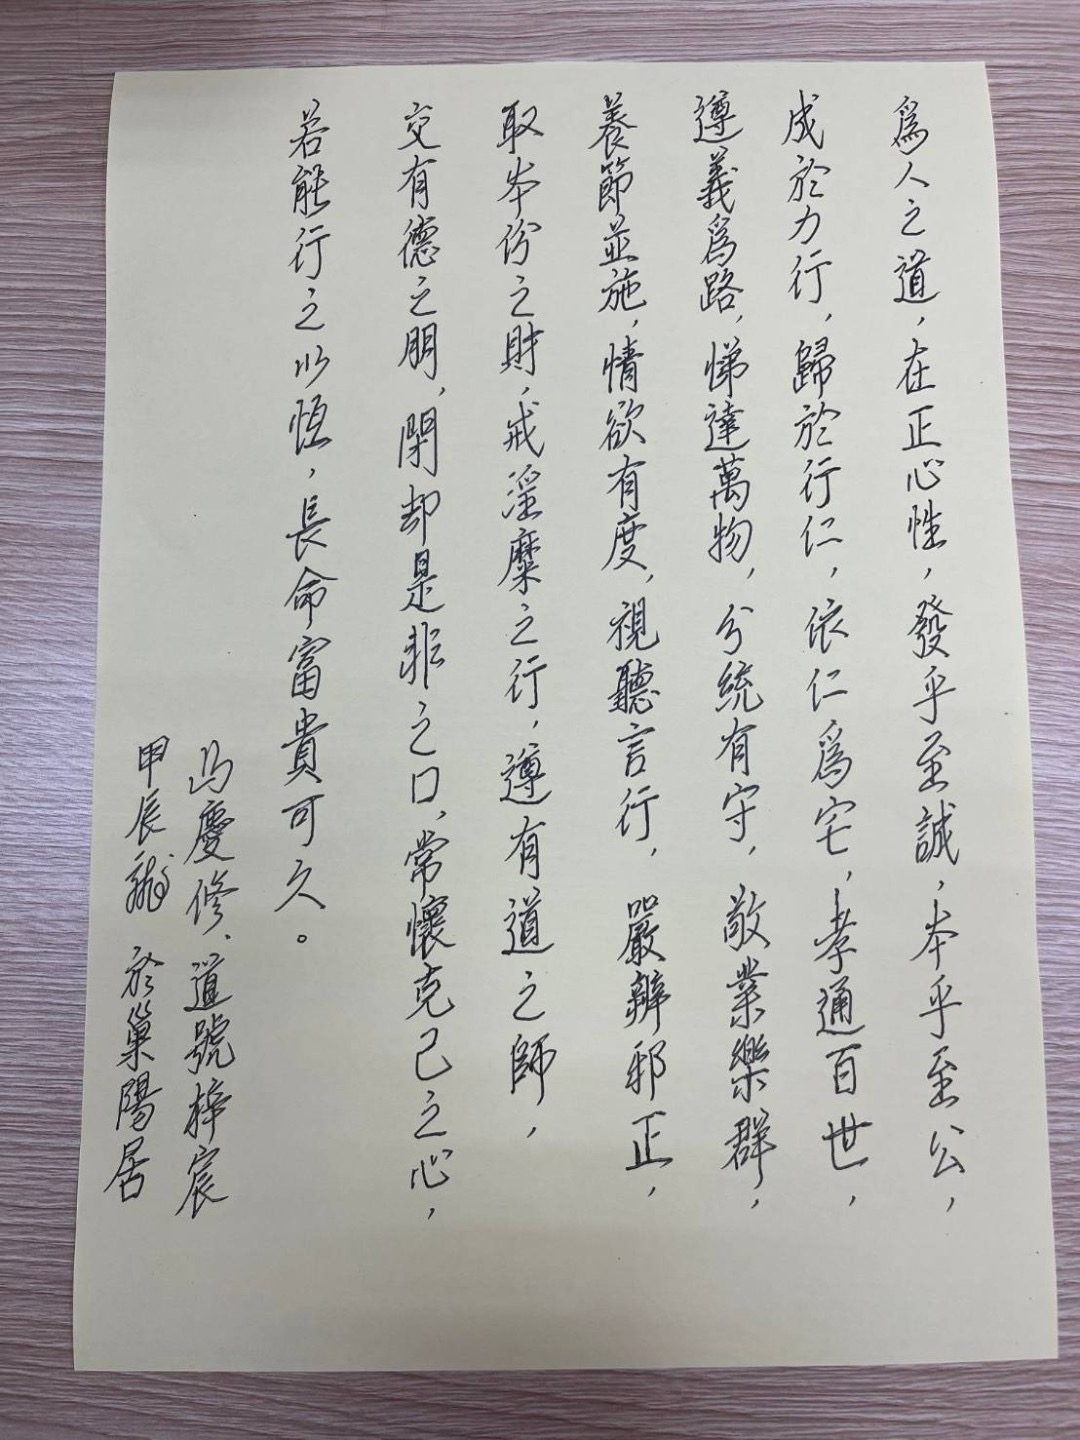 爲人之道，在正心性，發乎至誠，本乎至公，
成於力行，歸於行仁，依仁爲宅，孝通百世，
遵義爲路，悌達萬物，分統有守，敬業樂群，
養節並施，情欲有度，視聽言行，嚴辨邪正，
取本份之財，戒淫糜之行，遵有道之師，
交有德之朋，閉却是非之口，常懷克己之心，
若能行之以恆，長命富貴可久。
馮慶修、道號梓宸
甲辰龍 於巢陽居